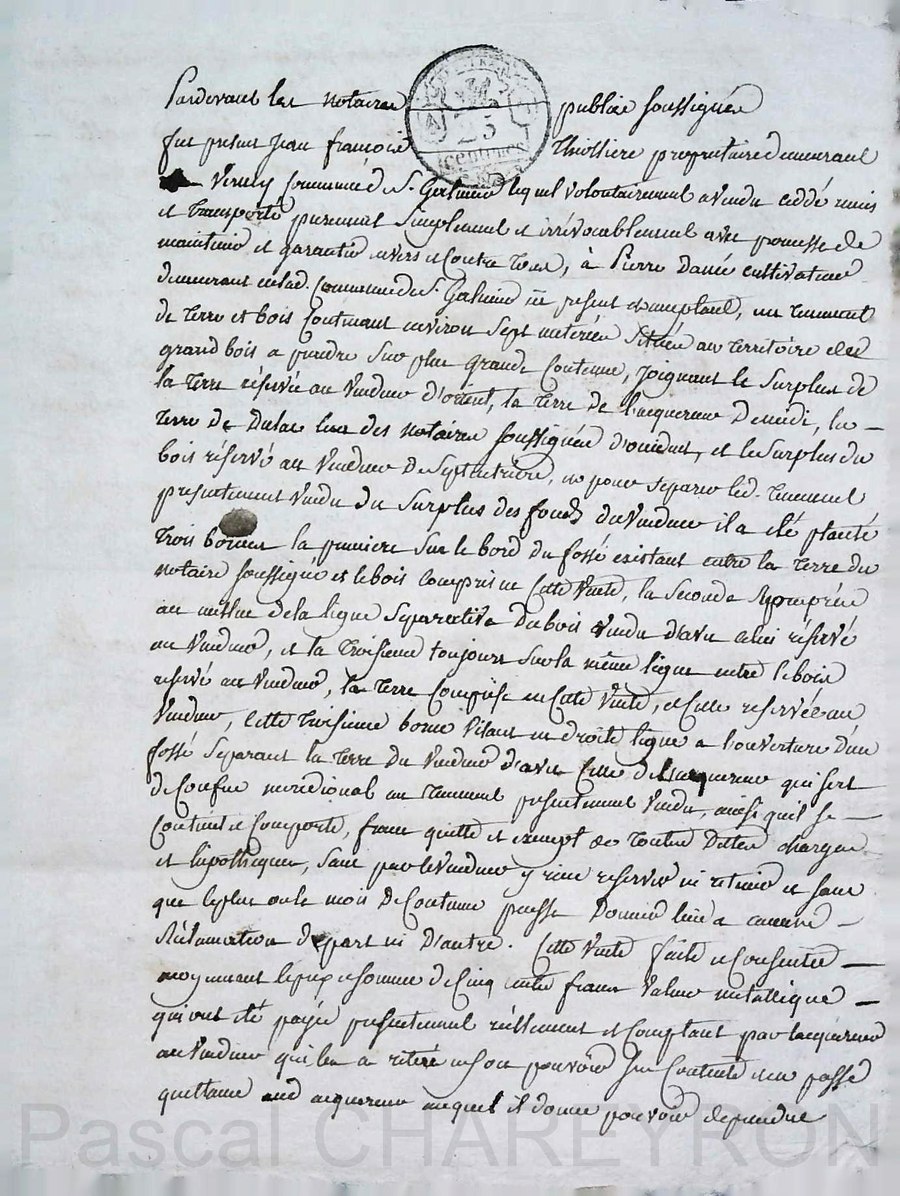 Pardevant les notaires publics soussignés
25
centimes
fut présent Jean françois Thiollière propriétaire demeurant
commune de St. Galmier lequel volontairement a vendu cédé remis
et transporté purement simplement et irrévocablement avec promesse de
maintenir et garantir envers et contre tous, à Pierre cultivateur
demeurant en lad. Commune de St. Galmier ici présent et acceptant, un tenement
de terre et bois contenant environ sept metérées situées au territoire des
grand bois a prendre sur plus grande contenue, joignant le surplus de
la terre réservée au vendeur d'orient, la terre de l'acquereur de midi, la
terre de Dulac lun des notaires soussignés d'occident, et le surplus du
bois réservé au vendeur de septentrion, et pour séparer led. tenement
présentement vendu du surplus des fonds du vendeur il a été planté
trois bornes la première sur le bord du fossé existant entre la terre du
notaire soussigné et le bois compris en cette vente, la seconde
au milieu de la ligne séparative du bois vendu d'avec celui réservé
au vendeur, et la troisième toujours sur la même ligne entre le bois
réservé au vendeur, la terre comprise en cette vente, et celle reservée au
vendeur, cette troisième borne visant en droite ligne a l'ouverture d'un
fossé séparant la terre du vendeur d'avec celle de l'acquereur qui sert
de confin méridional au tenement présentement vendu, ainsi quil se
contient et comporte, franc quitte et exempt de toutes dettes charges
et hipothèques, sans par le vendeur y rien reserver ni retenir et sans
que le plus ou le mois de contenue puisse donner lieu a aucune
réclamation de part ni d'autre. Cette vente faite et consentie
moyennant le prix et somme de cinq cents francs valeur métallique
qui ont été payés présentement réellement et comptant par lacquereur
au vendeur qui les a retiré en son pouvoir s'en contente en passe
quittance aud acquereur auquel il donne pouvoir de prendre
Pascal CHAREYRON